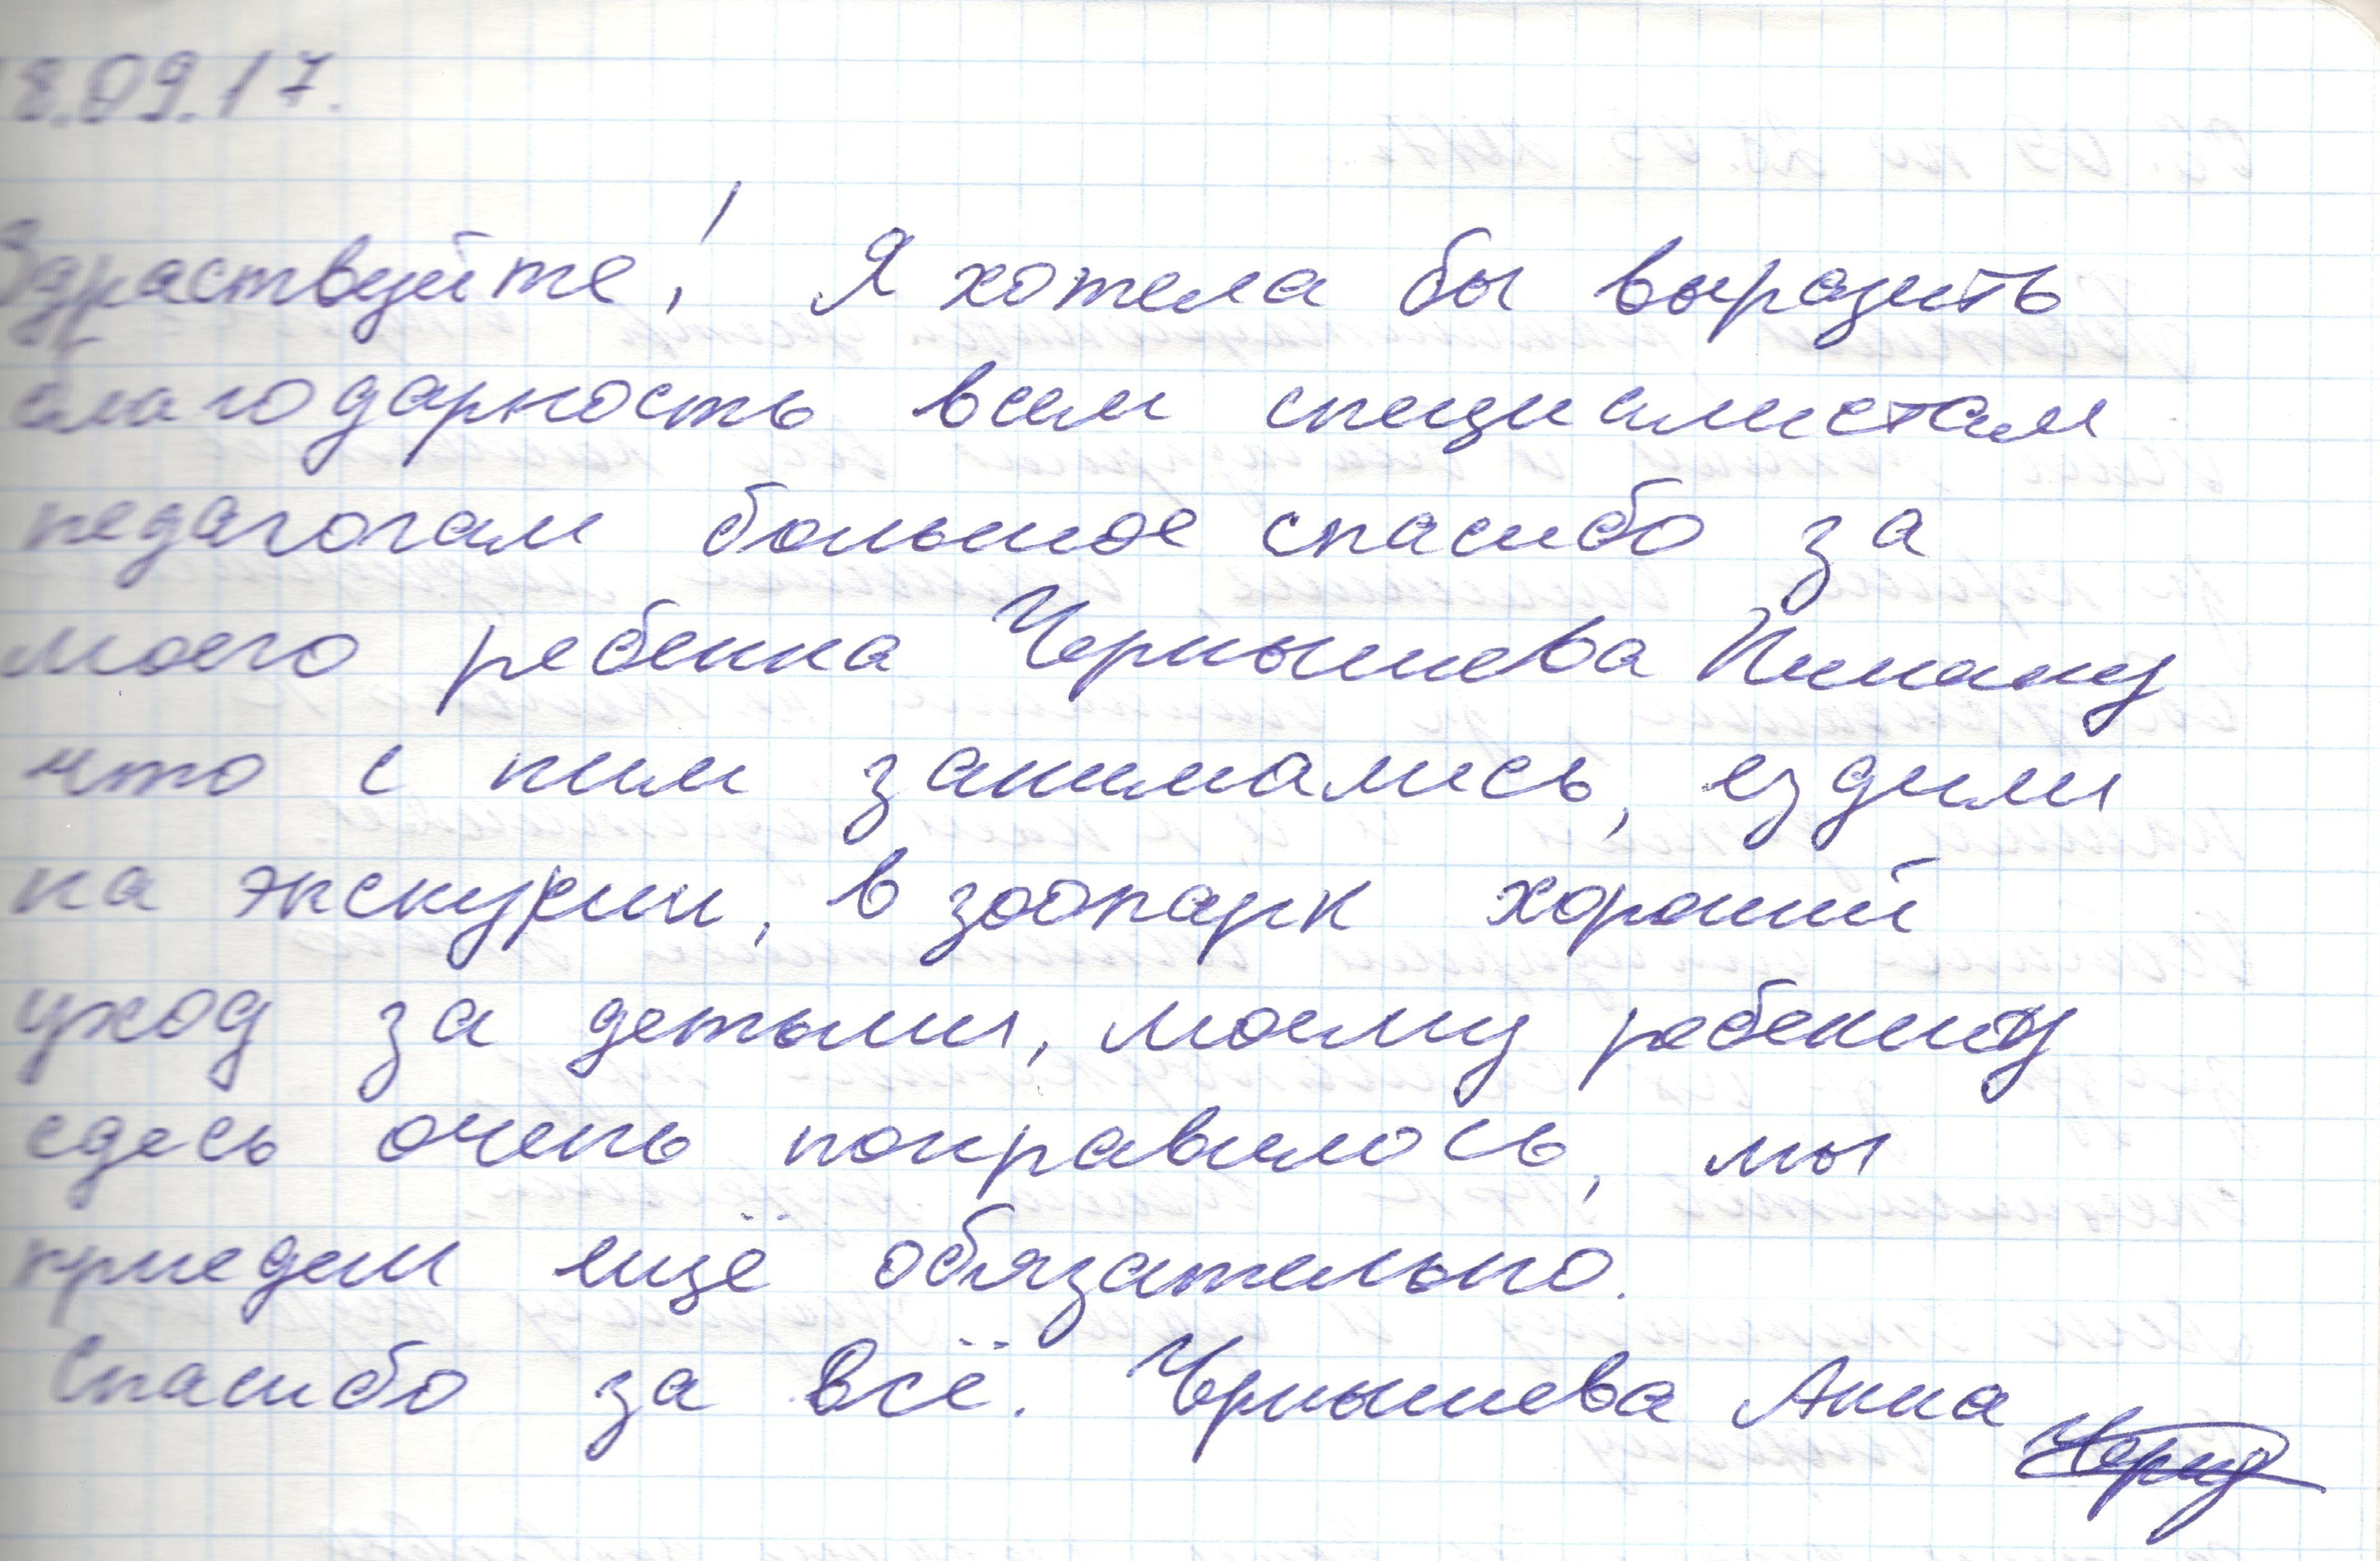 8.09.17.
Здраствуйте! Я хотела бы выразить
благодарность всем специалистам
педагогам большое спасибо за
моего ребенка Чернышева
что с ним занимались, ездили
на экскурсии, в зоопарк хороший
уход за детьми, моему ребенку
сдесь очень понравилось, мы
приедем ещё обязательно.
Спасибо за всё. Чернышева Анна